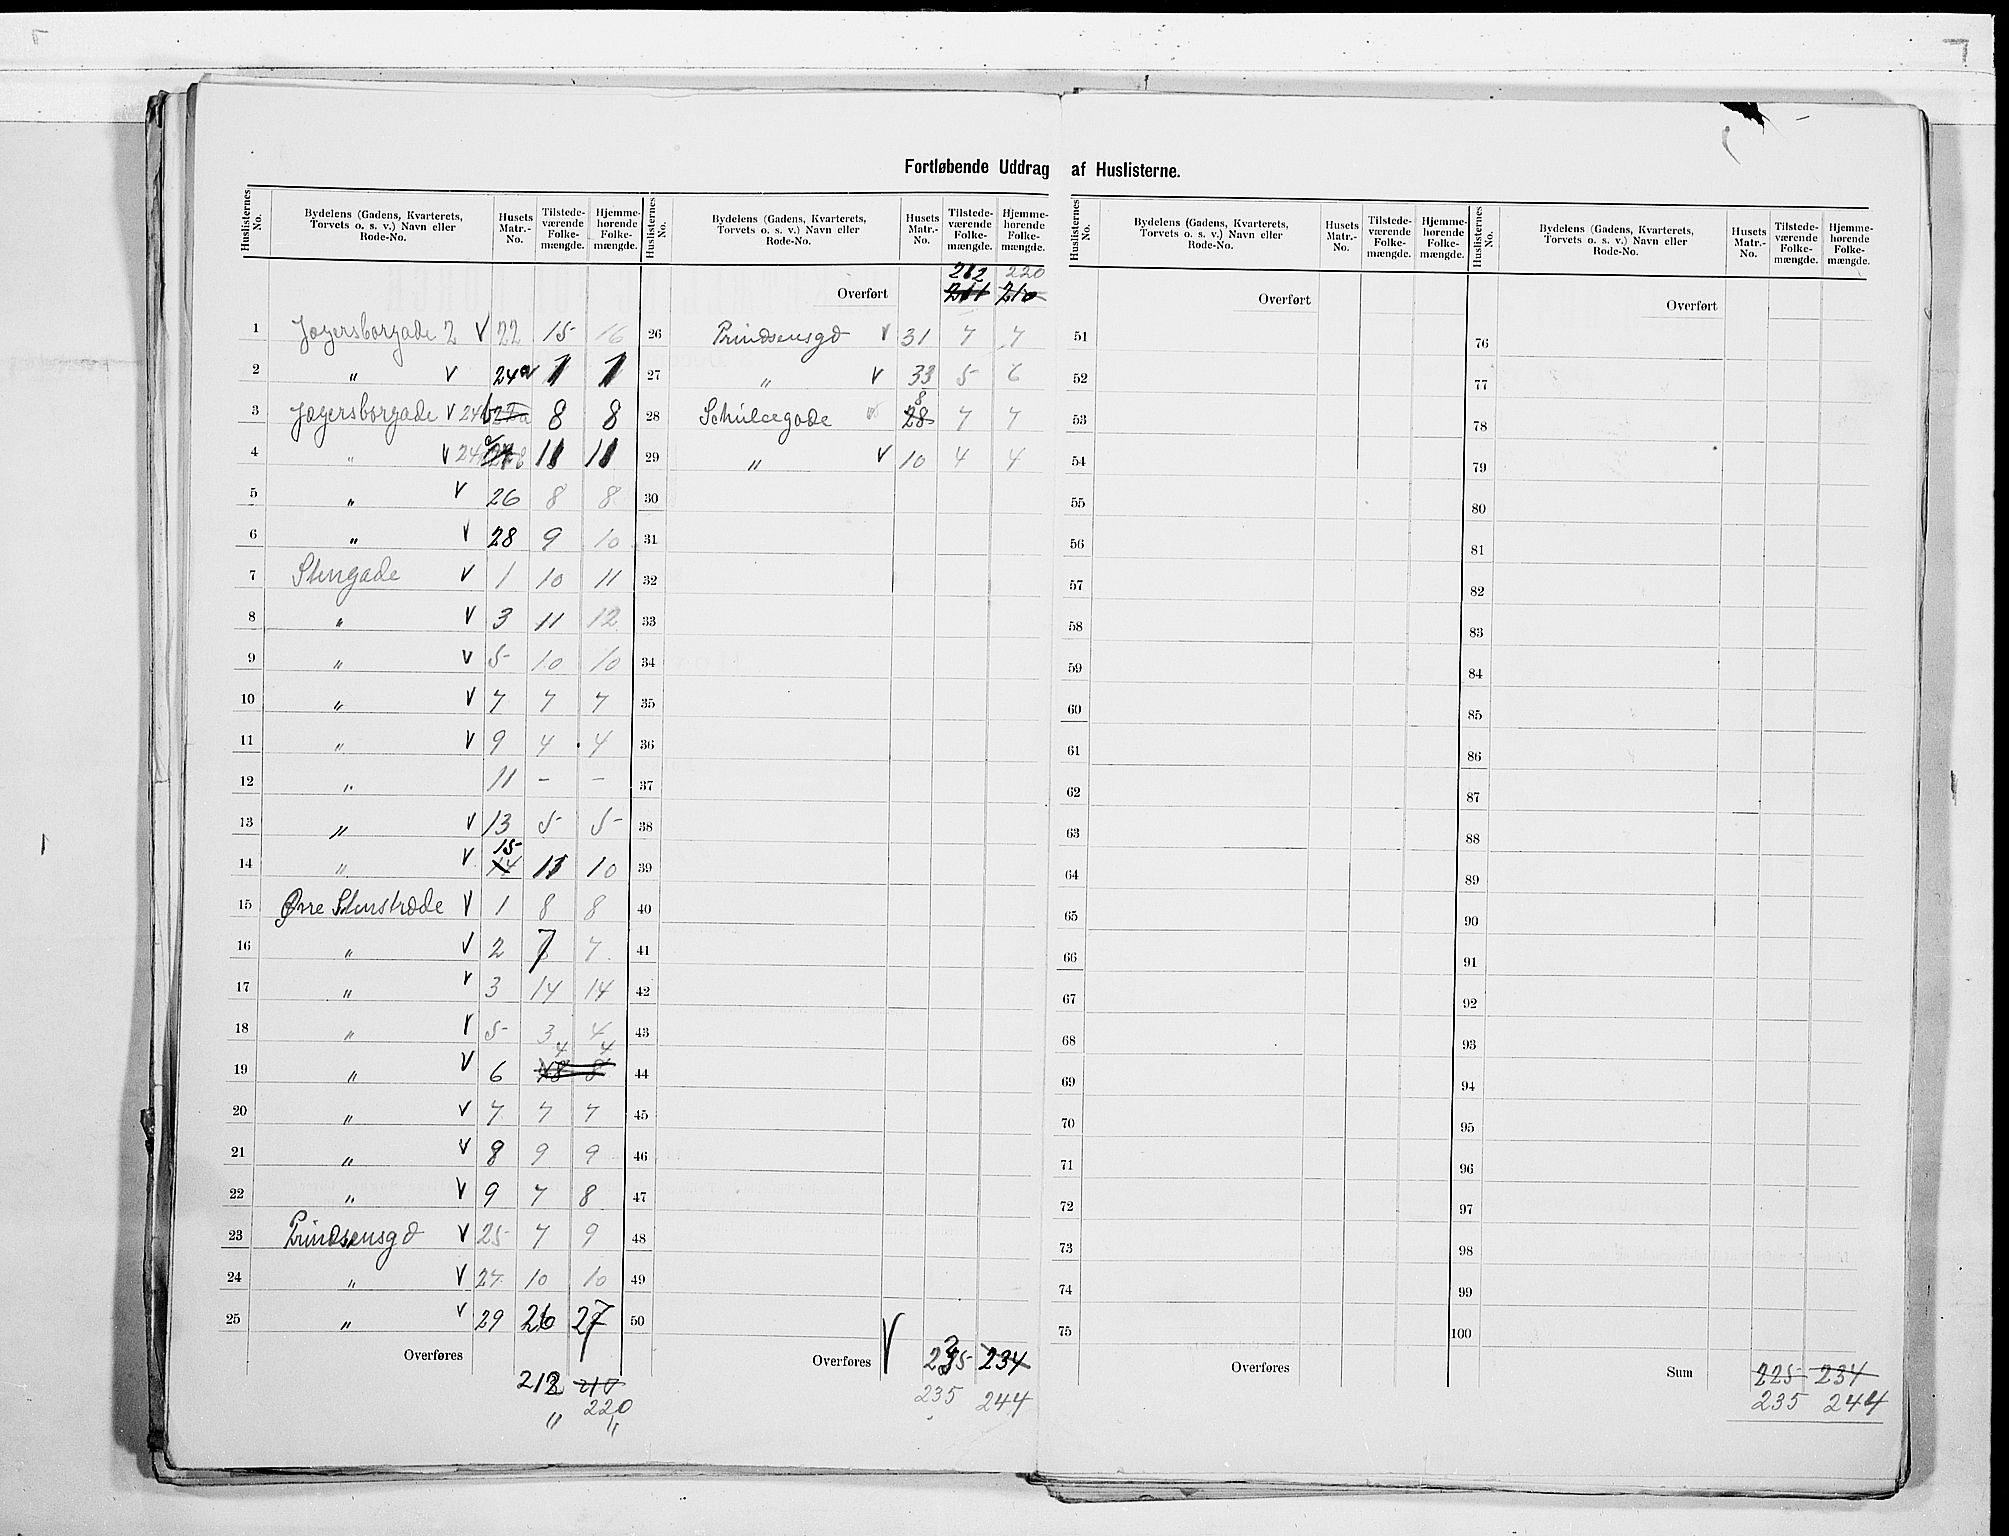 Fortløbende Uddrag af Huslisterne.
Huslisternes No. | Bydelens (Gadens, Kvarterets, Torvets o. s. v.) Navn eller Rode-No. | Husets Matr.-No. | Tilstedeværende Folkemængde. | Hjemmehørende Folkemængde.
1 Jægersborgade 2 V 22 15 16
2 " V 24a 1 1
3 Jægersborgade V 24b 8 8
4 " V 24 11 11
5 " V 26 8 8
6 " V 28 9 10
7 Stengade V 1 10 11
8 " V 3 11 12
9 " V 5 10 10
10 " V 7 7 7
11 " V 9 4 4
12 " 11 - -
13 " V 13 5 5
14 " V 15 14 11 10
15 Øvre Stenstræde V 1 8 8
16 " V 2 7 7
17 " V 3 14 14
18 " V 5 3 4
19 " V 6 4 4 8 8
20 " V 7 7 7
21 " V 8 9 9
22 " V 9 7 8
23 Prindsensgd V 25 7 9
24 " V 27 10 10
25 " V 29 26 27
Overføres
212 210
220
" "
Huslisternes No. | Bydelens (Gadens, Kvarterets, Torvets o. s. v.) Navn eller Rode-No. | Husets Matr.-No. | Tilstedeværende Folkemængde. | Hjemmehørende Folkemængde.
212 220
Overført 211 210
26 Prindsensgd V 31 7 7
27 " V 33 5 6
28 Schulcegade 8 28 7 7
29 " V 10 4 4
30
31
32
33
34
35
36
37
38
39
40
41
42
43
44
45
46
47
48
49
50
Overføres V 235 234
235 244
Huslisternes No. | Bydelens (Gadens, Kvarterets, Torvets o. s. v.) Navn eller Rode-No. | Husets Matr.-No. | Tilstedeværende Folkemængde. | Hjemmehørende Folkemængde.
Overført
51
52
53
54
55
56
57
58
59
60
61
62
63
64
65
66
67
68
69
70
71
72
73
74
75
Overføres
Huslisternes No. | Bydelens (Gadens, Kvarterets, Torvets o. s. v.) Navn eller Rode-No. | Husets Matr.-No. | Tilstedeværende Folkemængde. | Hjemmehørende Folkemængde.
Overført
76
77
78
79
80
81
82
83
84
85
86
87
88
89
90
91
92
93
94
95
96
97
98
99
100
Sum 225 234
235 244